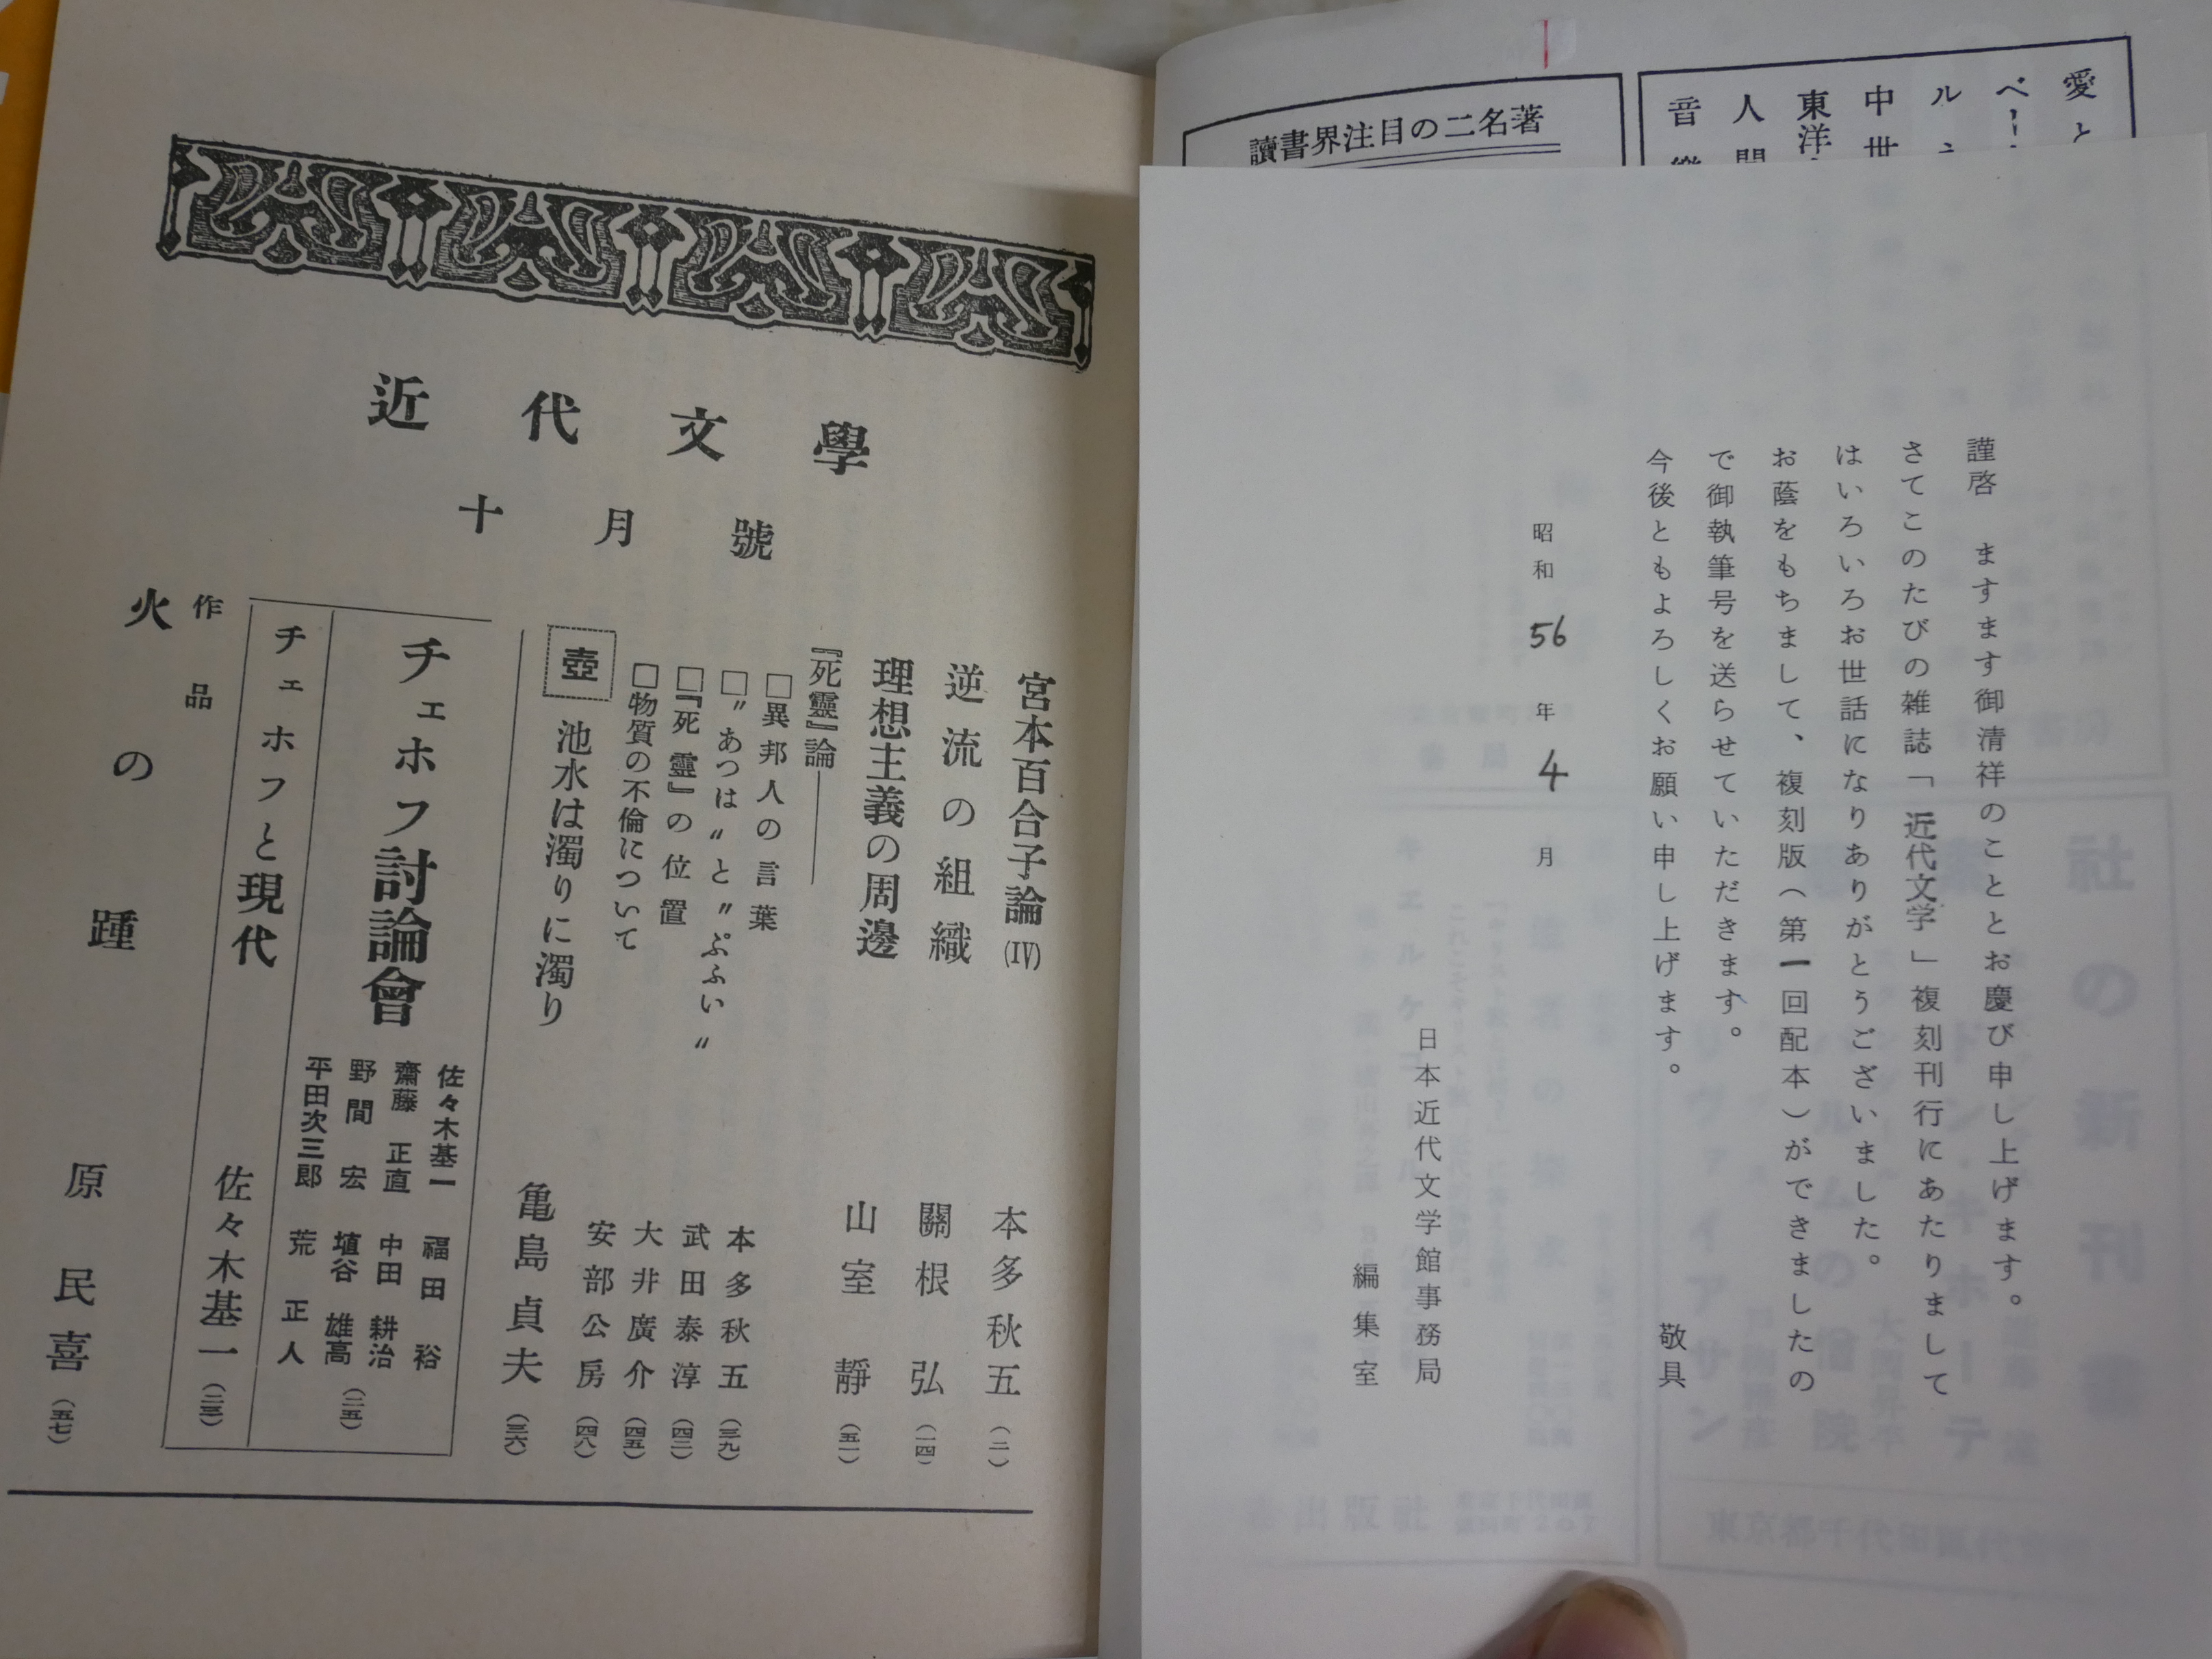 近代文學
十月號
宮本百合子論(Ⅳ) 本多秋五(二)
逆流の組織 關根弘(一四)
理想主義の周邊 山室靜(五一)
『死靈』論――
□異邦人の言葉 本多秋五(三九)
□〝あつは〟と〝ぷふい〟 武田泰淳(四二)
□『死靈』の位置 大井廣介(四五)
□物質の不倫について 安部公房(四八)
壺 池水は濁りに濁り 亀島貞夫(三六)
チェホフ討論會
佐々木基一 福田裕
齋藤正直 中田耕治
野間宏 埴谷雄高(二五)
平田次三郎 荒正人
チェホフと現代 佐々木基一(二三)
作品
火の踵 原民喜(五七)
讀書界注目の二名著
愛と
ベー
ル
中世
東洋
人間
音樂
謹啓 ますます御清祥のこととお慶び申し上げます。
さてこのたびの雑誌「近代文学」複刻刊行にあたりまして
はいろいろお世話になりありがとうございました。
お蔭をもちまして、複刻版(第一回配本)ができましたの
で御執筆号を送らせていただきます。
今後ともよろしくお願い申し上げます。
敬具
昭和56年4月
日本近代文学館事務局
編集室